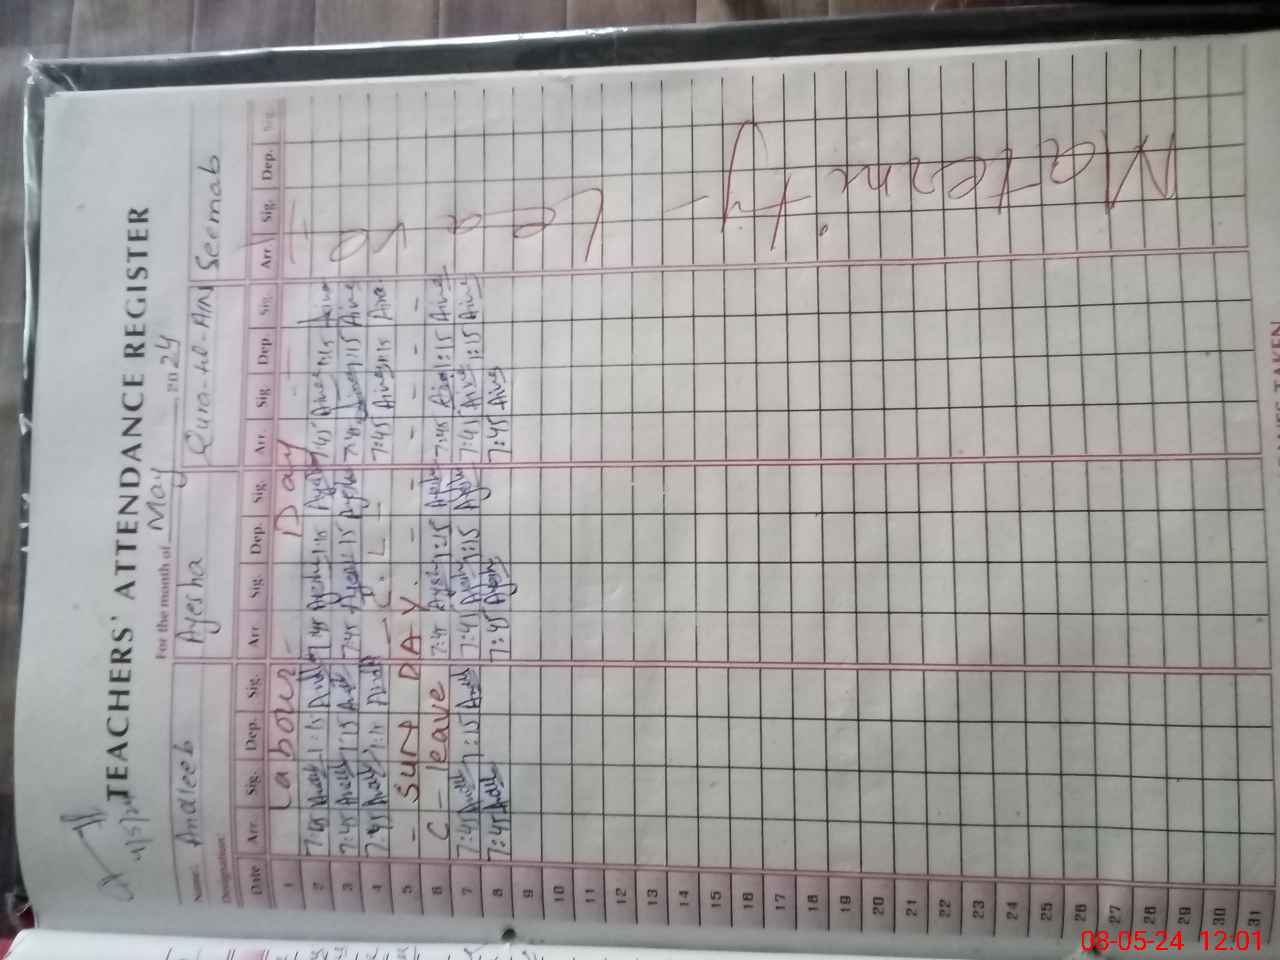 4/5/24
TEACHERS' ATTENDANCE REGISTER
For the month of May 2024
Name: Andleeb Ayesha Qura-tul-AIN Seemab
Designation:
Date Arr. Sig. Dep. Sig. Arr. Sig. Dep. Sig. Arr. Sig. Dep. Sig. Arr. Sig. Dep. Sig.
1 Labour - Day
2 7:45 Andl 1:15 Andl 7:45 Ayesha 1:15 Ayesha 7:45 Aine 1:15 Aine
3 7:45 Andl 1:15 Andl 7:45 Ayesha 1:15 Ayesha 7:45 Aine 1:15 Aine
4 7:45 Andl 1:15 Andl - C. L - 7:45 Aine 1:15 Aine
5 - SUN DAY. - - - - - -
6 C - leave 7:45 Ayesha 1:15 Ayesha 7:45 Aine 1:15 Aine
7 7:45 Andl 1:15 Andl 7:45 Ayesha 1:15 Ayesha 7:45 Aine 1:15 Aine
8 7:45 Andl 7:45 Ayesha 7:45 Aine
9
10
11
12
13
14
15
16
17
18
19
20
21
22
23
24
25
26
27
28
29
30
31
Maternity - Leave
08-05-24 12:01